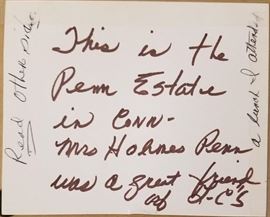 This is the
Penn Estate
in Conn-
Mrs Holmes Penn
was a great friend
of H-C's
Read Other side.
a lunch I attended